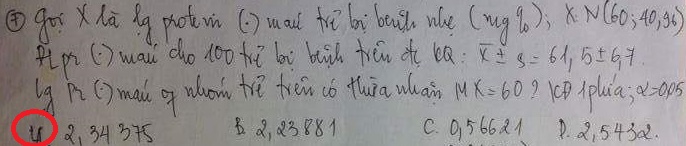 ⑦ gọi X là lg protein (·) máu trẻ bị bệnh nhẹ (mg%); X: N(60; 40,96)
Pt pr (·) máu cho 100 trẻ bị bệnh trên đc KQ: x̄ ± s = 61,5 ± 6,7.
lg Pr (·) máu of nhóm trẻ trên có thừa nhận MX = 60? KĐ 1 phía; α = 0,05
2,34375 B. 2,23881 C. 0,56621 D. 2,5432.